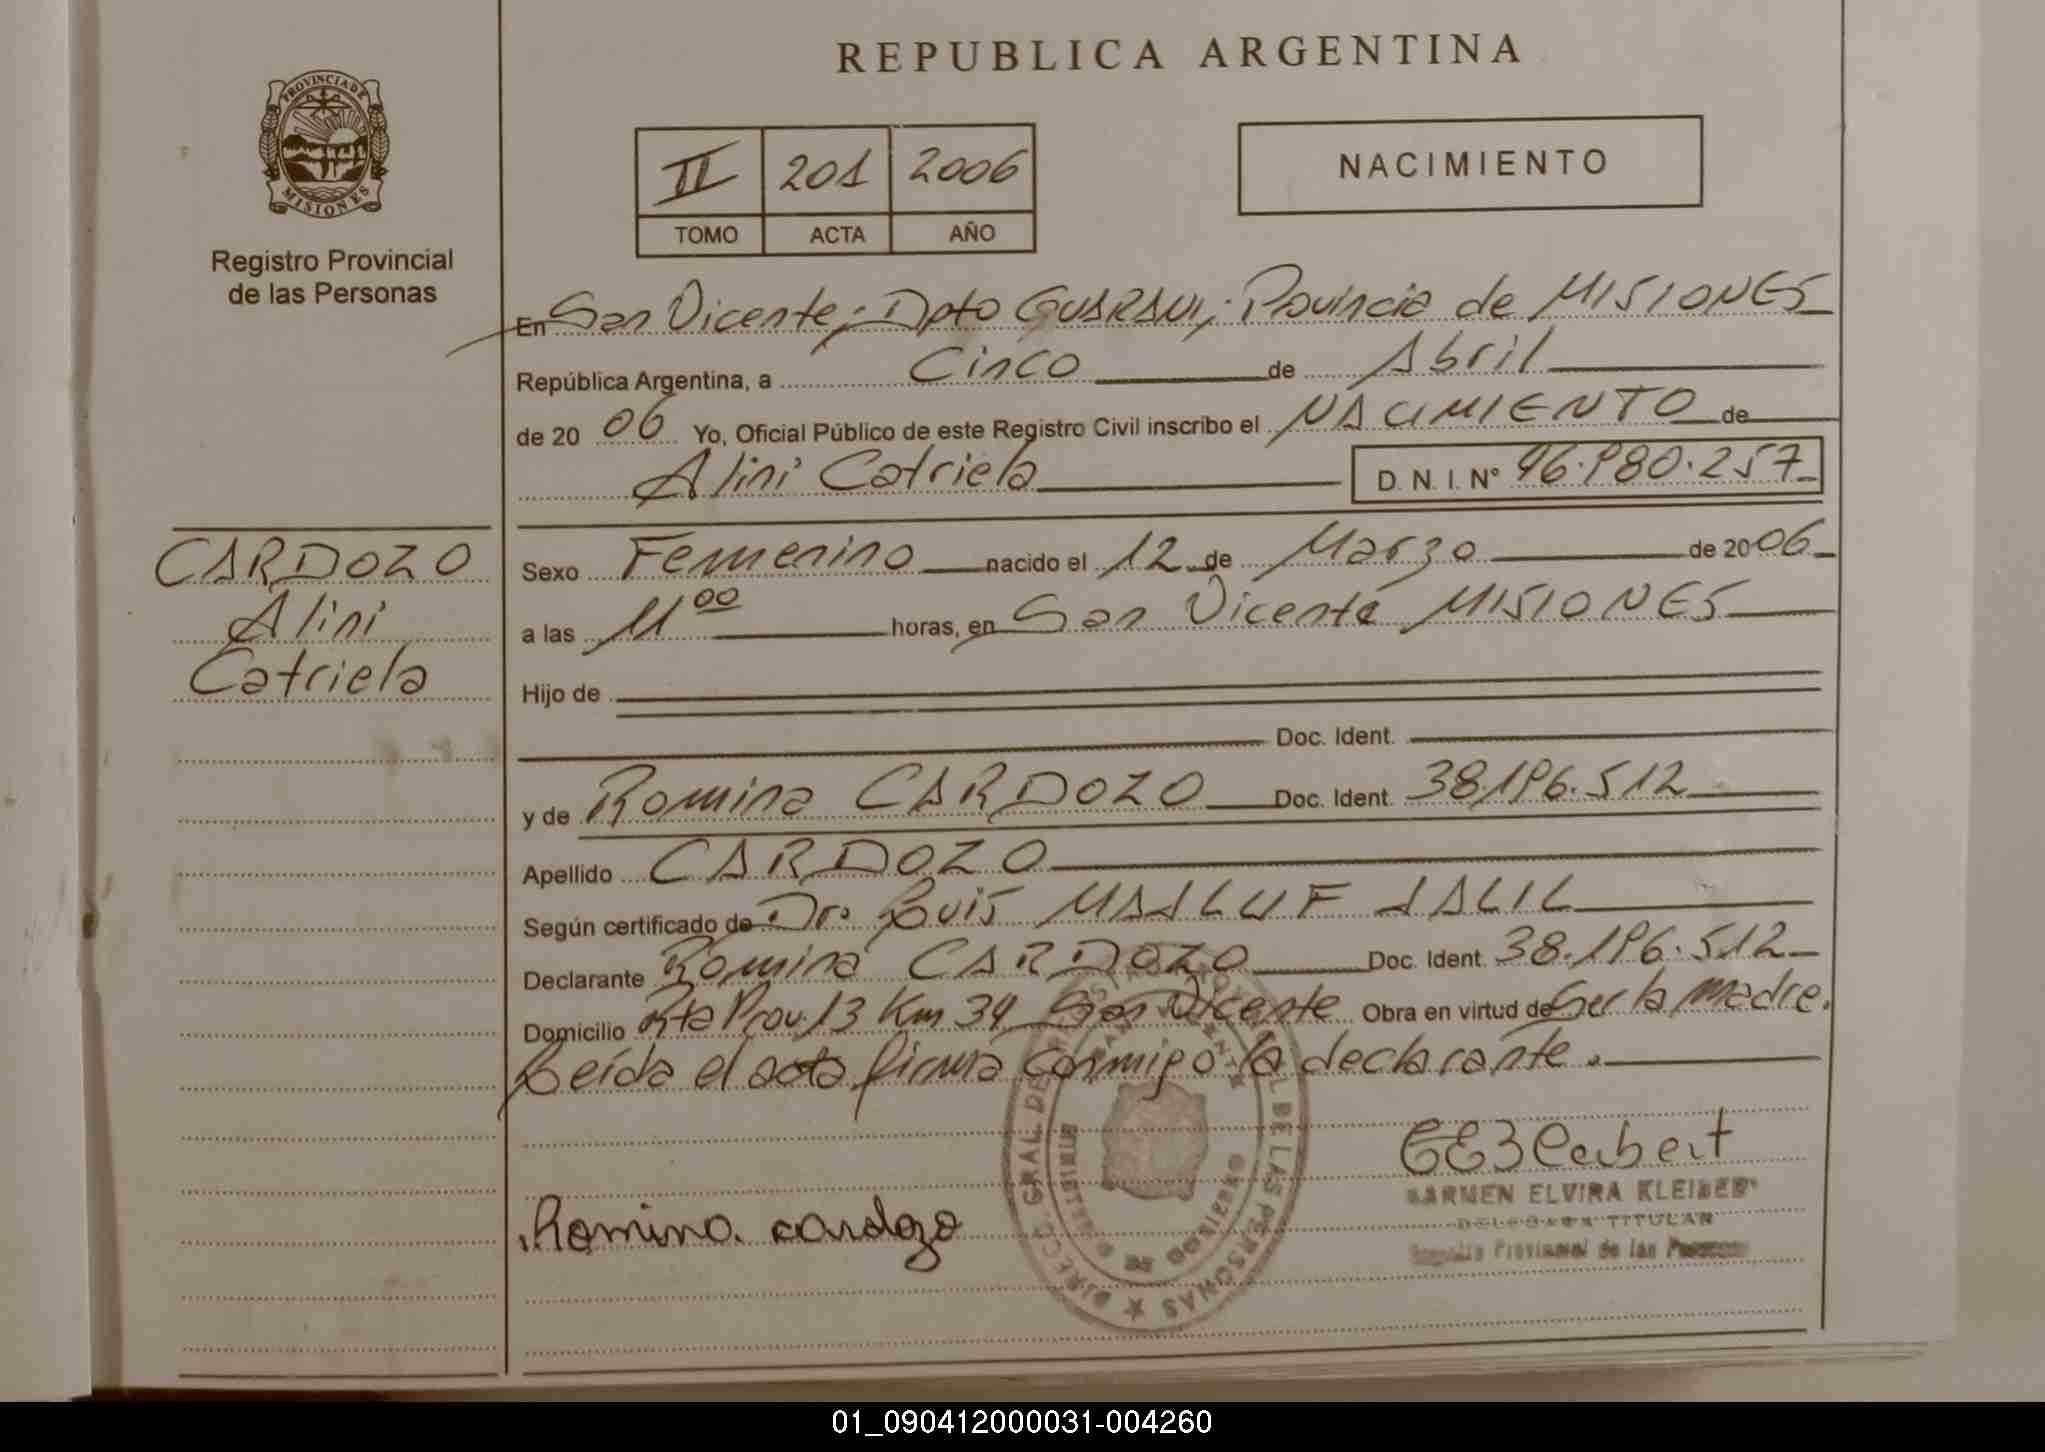 PROVINCIA DE
MISIONES
Registro Provincial
de las Personas
CARDOZO
Alini
Catriela
REPUBLICA ARGENTINA
II 201 2006
TOMO ACTA AÑO
NACIMIENTO
En San Vicente; Dpto GUARANI; Provincia de MISIONES
República Argentina, a Cinco de Abril
de 20 06 Yo, Oficial Público de este Registro Civil inscribo el NACIMIENTO de
Alini Catriela D. N. I. Nº 46.980.257
Sexo Femenino nacido el 12 de Marzo de 2006
a las 11 00 horas, en San Vicente MISIONES
Hijo de
Doc. Ident.
y de Romina CARDOZO Doc. Ident. 38.196.512
Apellido CARDOZO
Según certificado de Dr. Luis MAALUF JALIL
Declarante Romina CARDOZO Doc. Ident. 38.196.512
Domicilio Rta Prov. 13 Km 34 San Vicente Obra en virtud de Ser la madre.
Leída el acta firma conmigo la declarante.
CARMEN ELVIRA KLEIBER
DELEGADA TITULAR
Registro Provincial de las Personas
Romina cardozo
DIRECC. GRAL. DE REGISTRO PROVINCIAL DE LAS PERSONAS
SAN VICENTE
MISIONES
01_090412000031-004260